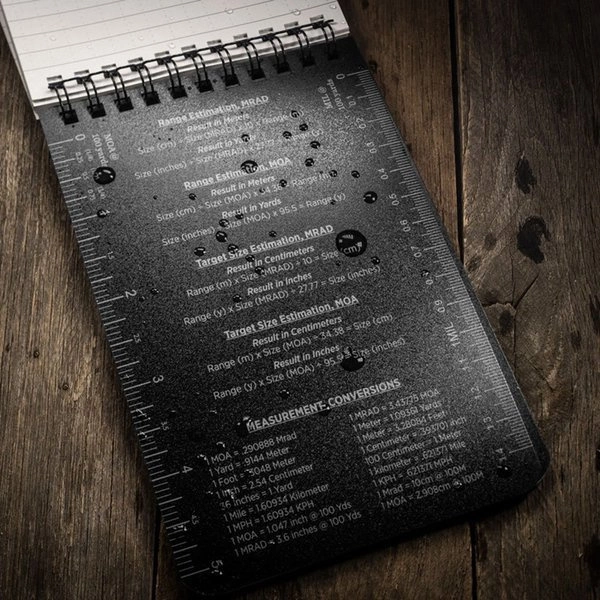 Range Estimation, MRAD
Result in Meters
Size (cm) ÷ Size (MRAD)
Result in Yards
Size (inches) ÷ Size (MRAD) x 27
Range Estimation, MOA
Result in Meters
Size (cm) ÷ Size (MOA) x 34.38 = Range
Result in Yards
Size (inches) Size (MOA) x 95.5 = Range (y)
Target Size Estimation, MRAD
Result in Centimeters
Range (m) x Size (MRAD) ÷ 10 = Size (cm)
Result in Inches
Range (y) x Size (MRAD) ÷ 27.77 = Size (inches)
Target Size Estimation, MOA
Result in Centimeters
Range (m) x Size (MOA) ÷ 34.38 = Size (cm)
Result in Inches
Range (y) x Size (MOA) ÷ 95.5 Size (inches)
MEASUREMENT CONVERSIONS
1 MOA = .290888 Mrad
1 Yard = .9144 Meter
1 Foot = .3048 Meter
1 Inch = 2.54 Centimeter
36 inches = 1 Yard
1 Mile = 1.60934 Kilometer
1 MPH = 1.60934 KPH
1 MOA = 1.047 inch @ 100 Yds
1 MRAD = 3.6 inches @ 100 Yds
1 MRAD = 3.43775 MOA
1 Meter = 1.09361 Yards
1 Meter = 3.28084 Feet
1 Centimeter = .39370 inch
100 Centimeter = 1 Meter
1 kilometer = .621371 Mile
1 KPH = .621371 MPH
1 Mrad = 10cm @ 100M
1 MOA = 2.908cm @ 100M
0
MOA @
100 yards
2
3
3.5
4
4.5
5
0
MIL @
100 yards
0.2
0.3
0.4
0.5
0.6
0.7
0.8
0.9
1 MIL
1.2
1.3
1.4